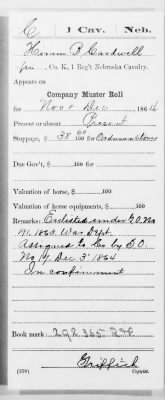 C | 1 Cav. | Neb.
Hiram B. Cardwell
Co. K, 1 Reg't Nebraska Cavalry.
Appears on
Company Muster Roll
for Nov & Dec, 1864
Present or absent Present
Stoppage, $ 38 60/100 for Ordnance Stores
Due Gov't, $ 100 for
Valuation of horse, $ 100
Valuation of horse equipments, $ 100
Remarks: Enlisted under G.O. No
191. 1863 War Dept.
Assigned to Co by S.O.
No 9 Dec 3' 1864
In confinement
Book mark: 292.365 R&P
Griffith
(359) Copyist.